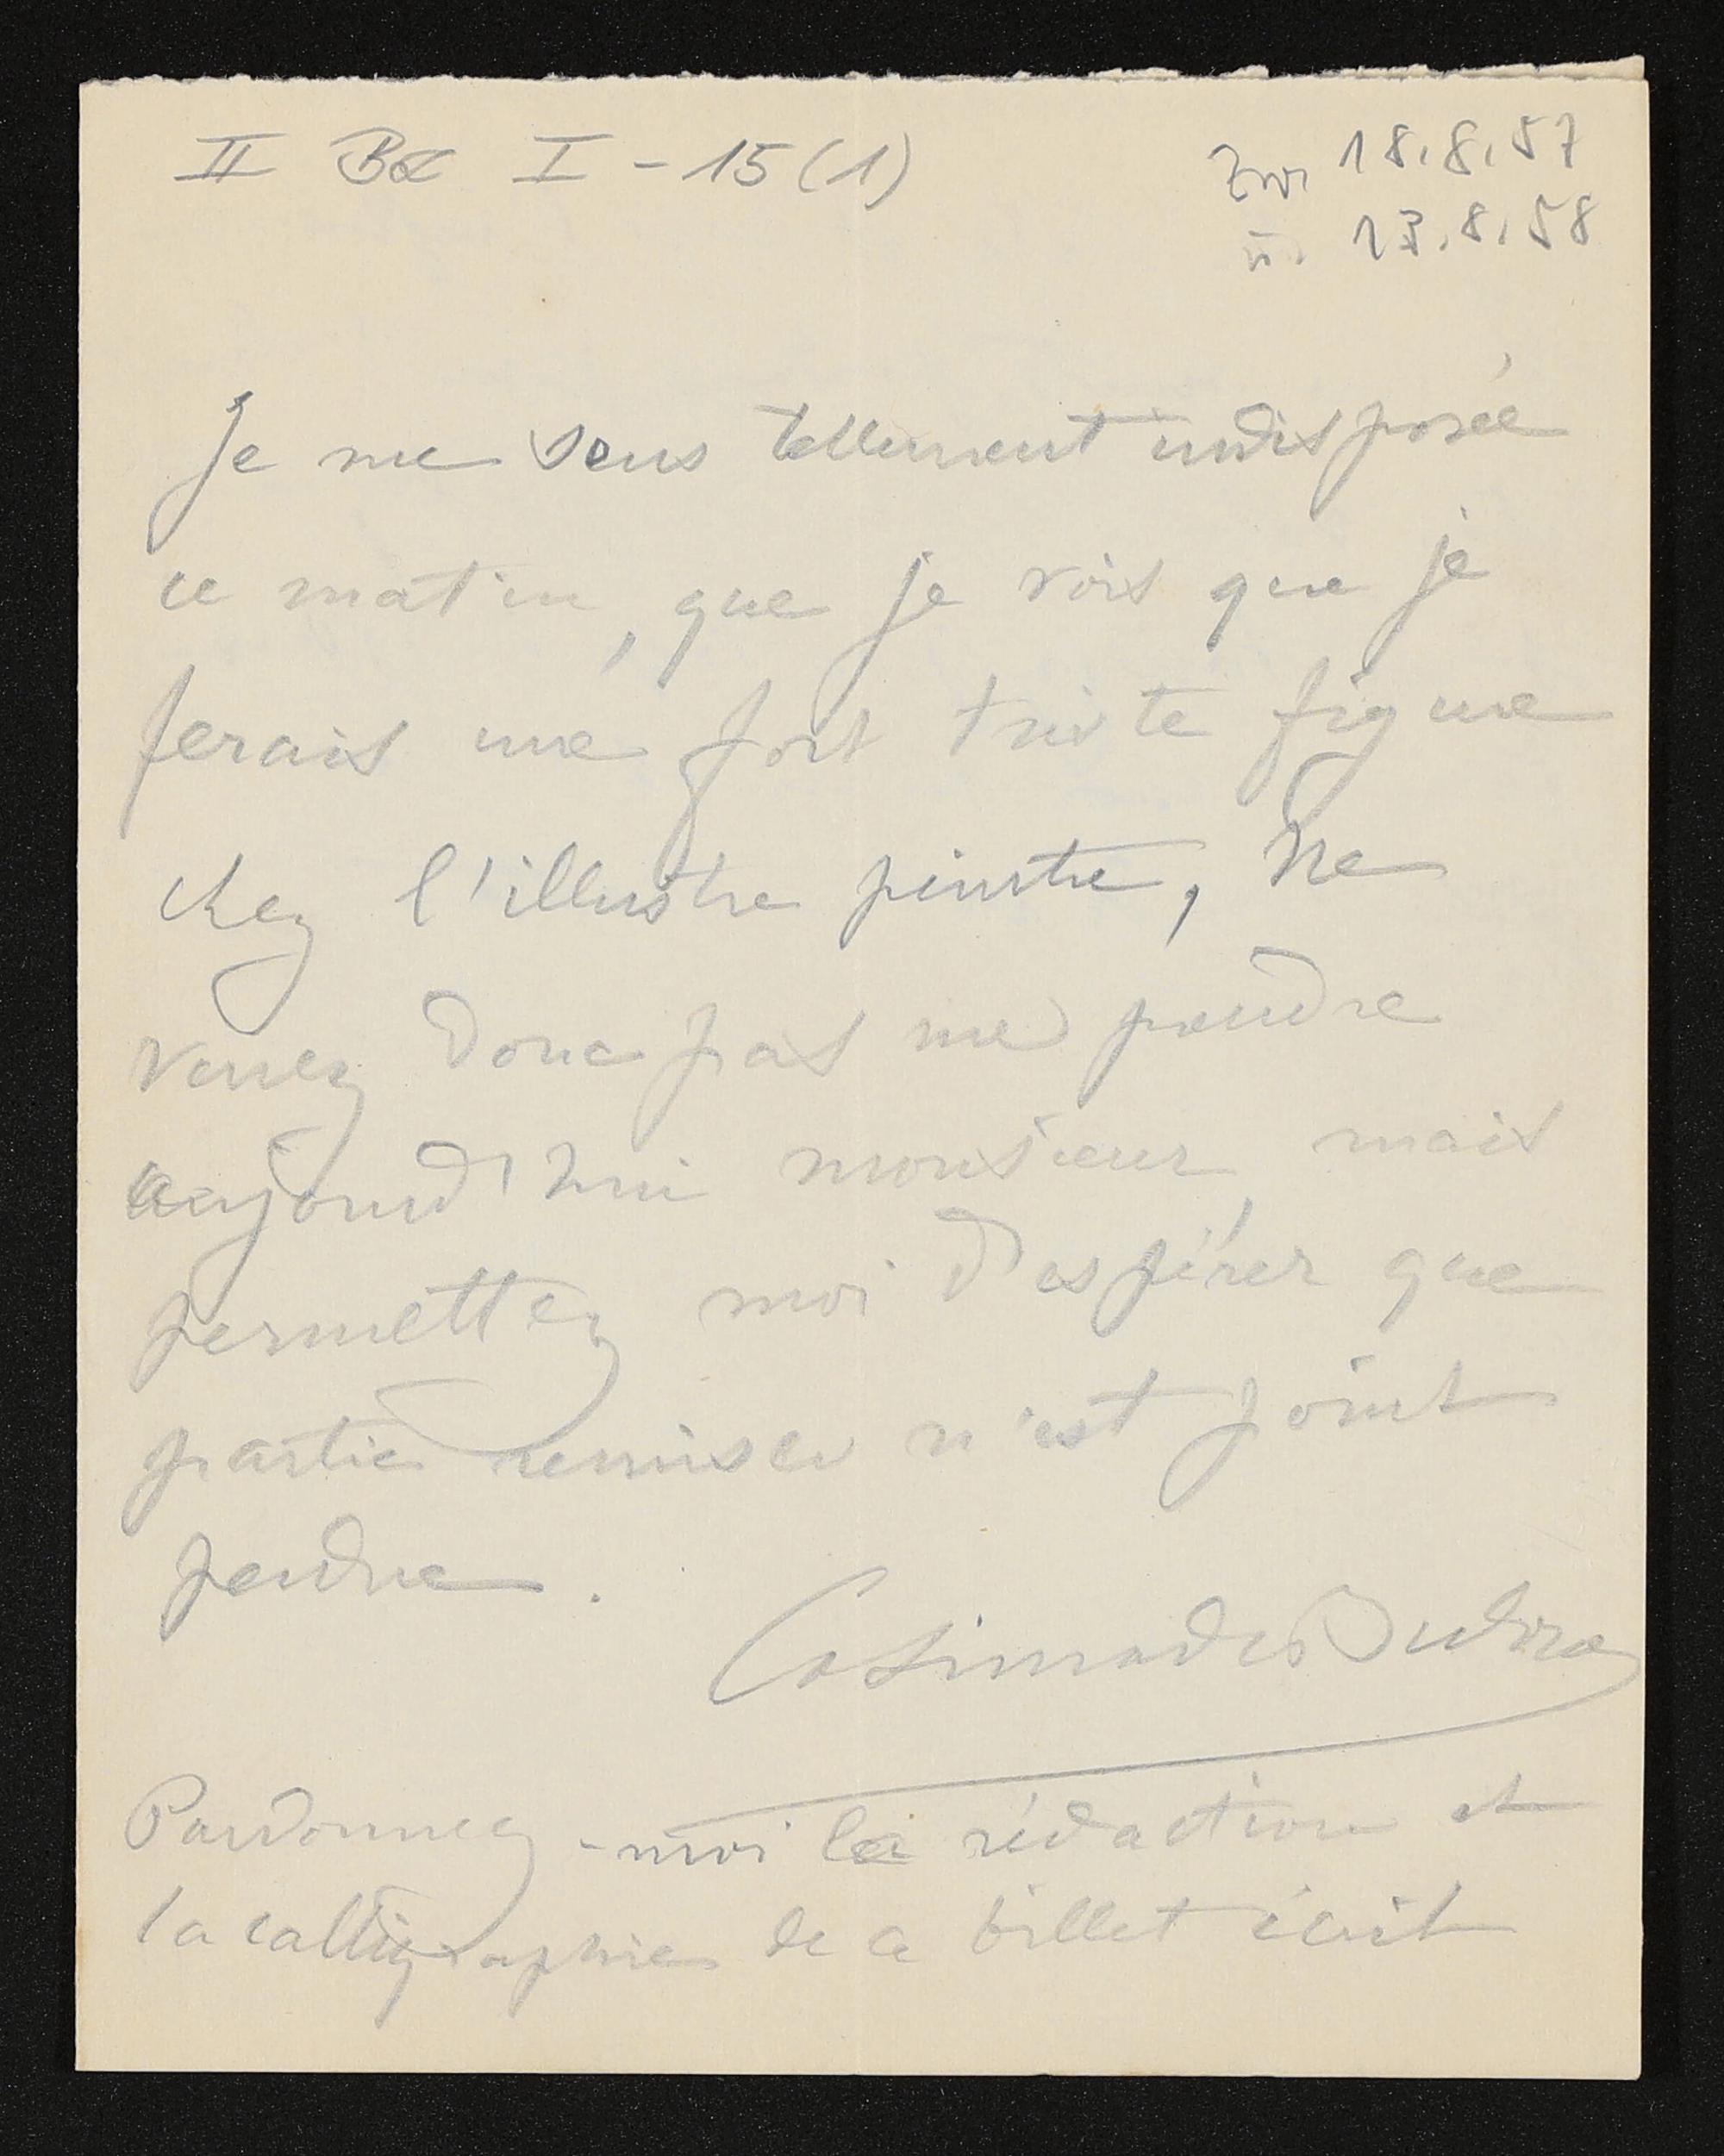 II B I - 15 (1)
Zw. 18.8.57
u. 13.8.58
Je me sens tellement indisposée
ce matin, que je vois que je
ferais une fort triste figure
chez l'illustre peintre, Ne
venez donc pas me prendre
aujourd'hui monsieur, mais
permettez moi d'espérer que
partie remise n'est point
perdue.
Cosima de Bülow
Pardonnez-moi la rédaction et
la calligraphie de ce billet écrit